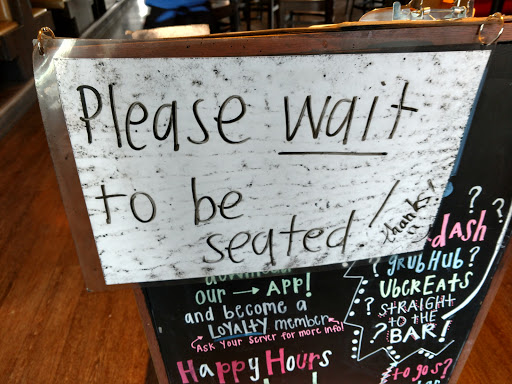 Please wait
to be
seated!
thanks!
our → APP!
and become a
LOYALTY member
*Ask your server for more info!
Happy Hours
dash
? grubHub?
? UberEats
STRAIGHT
? TO THE ?
BAR!
to gos?